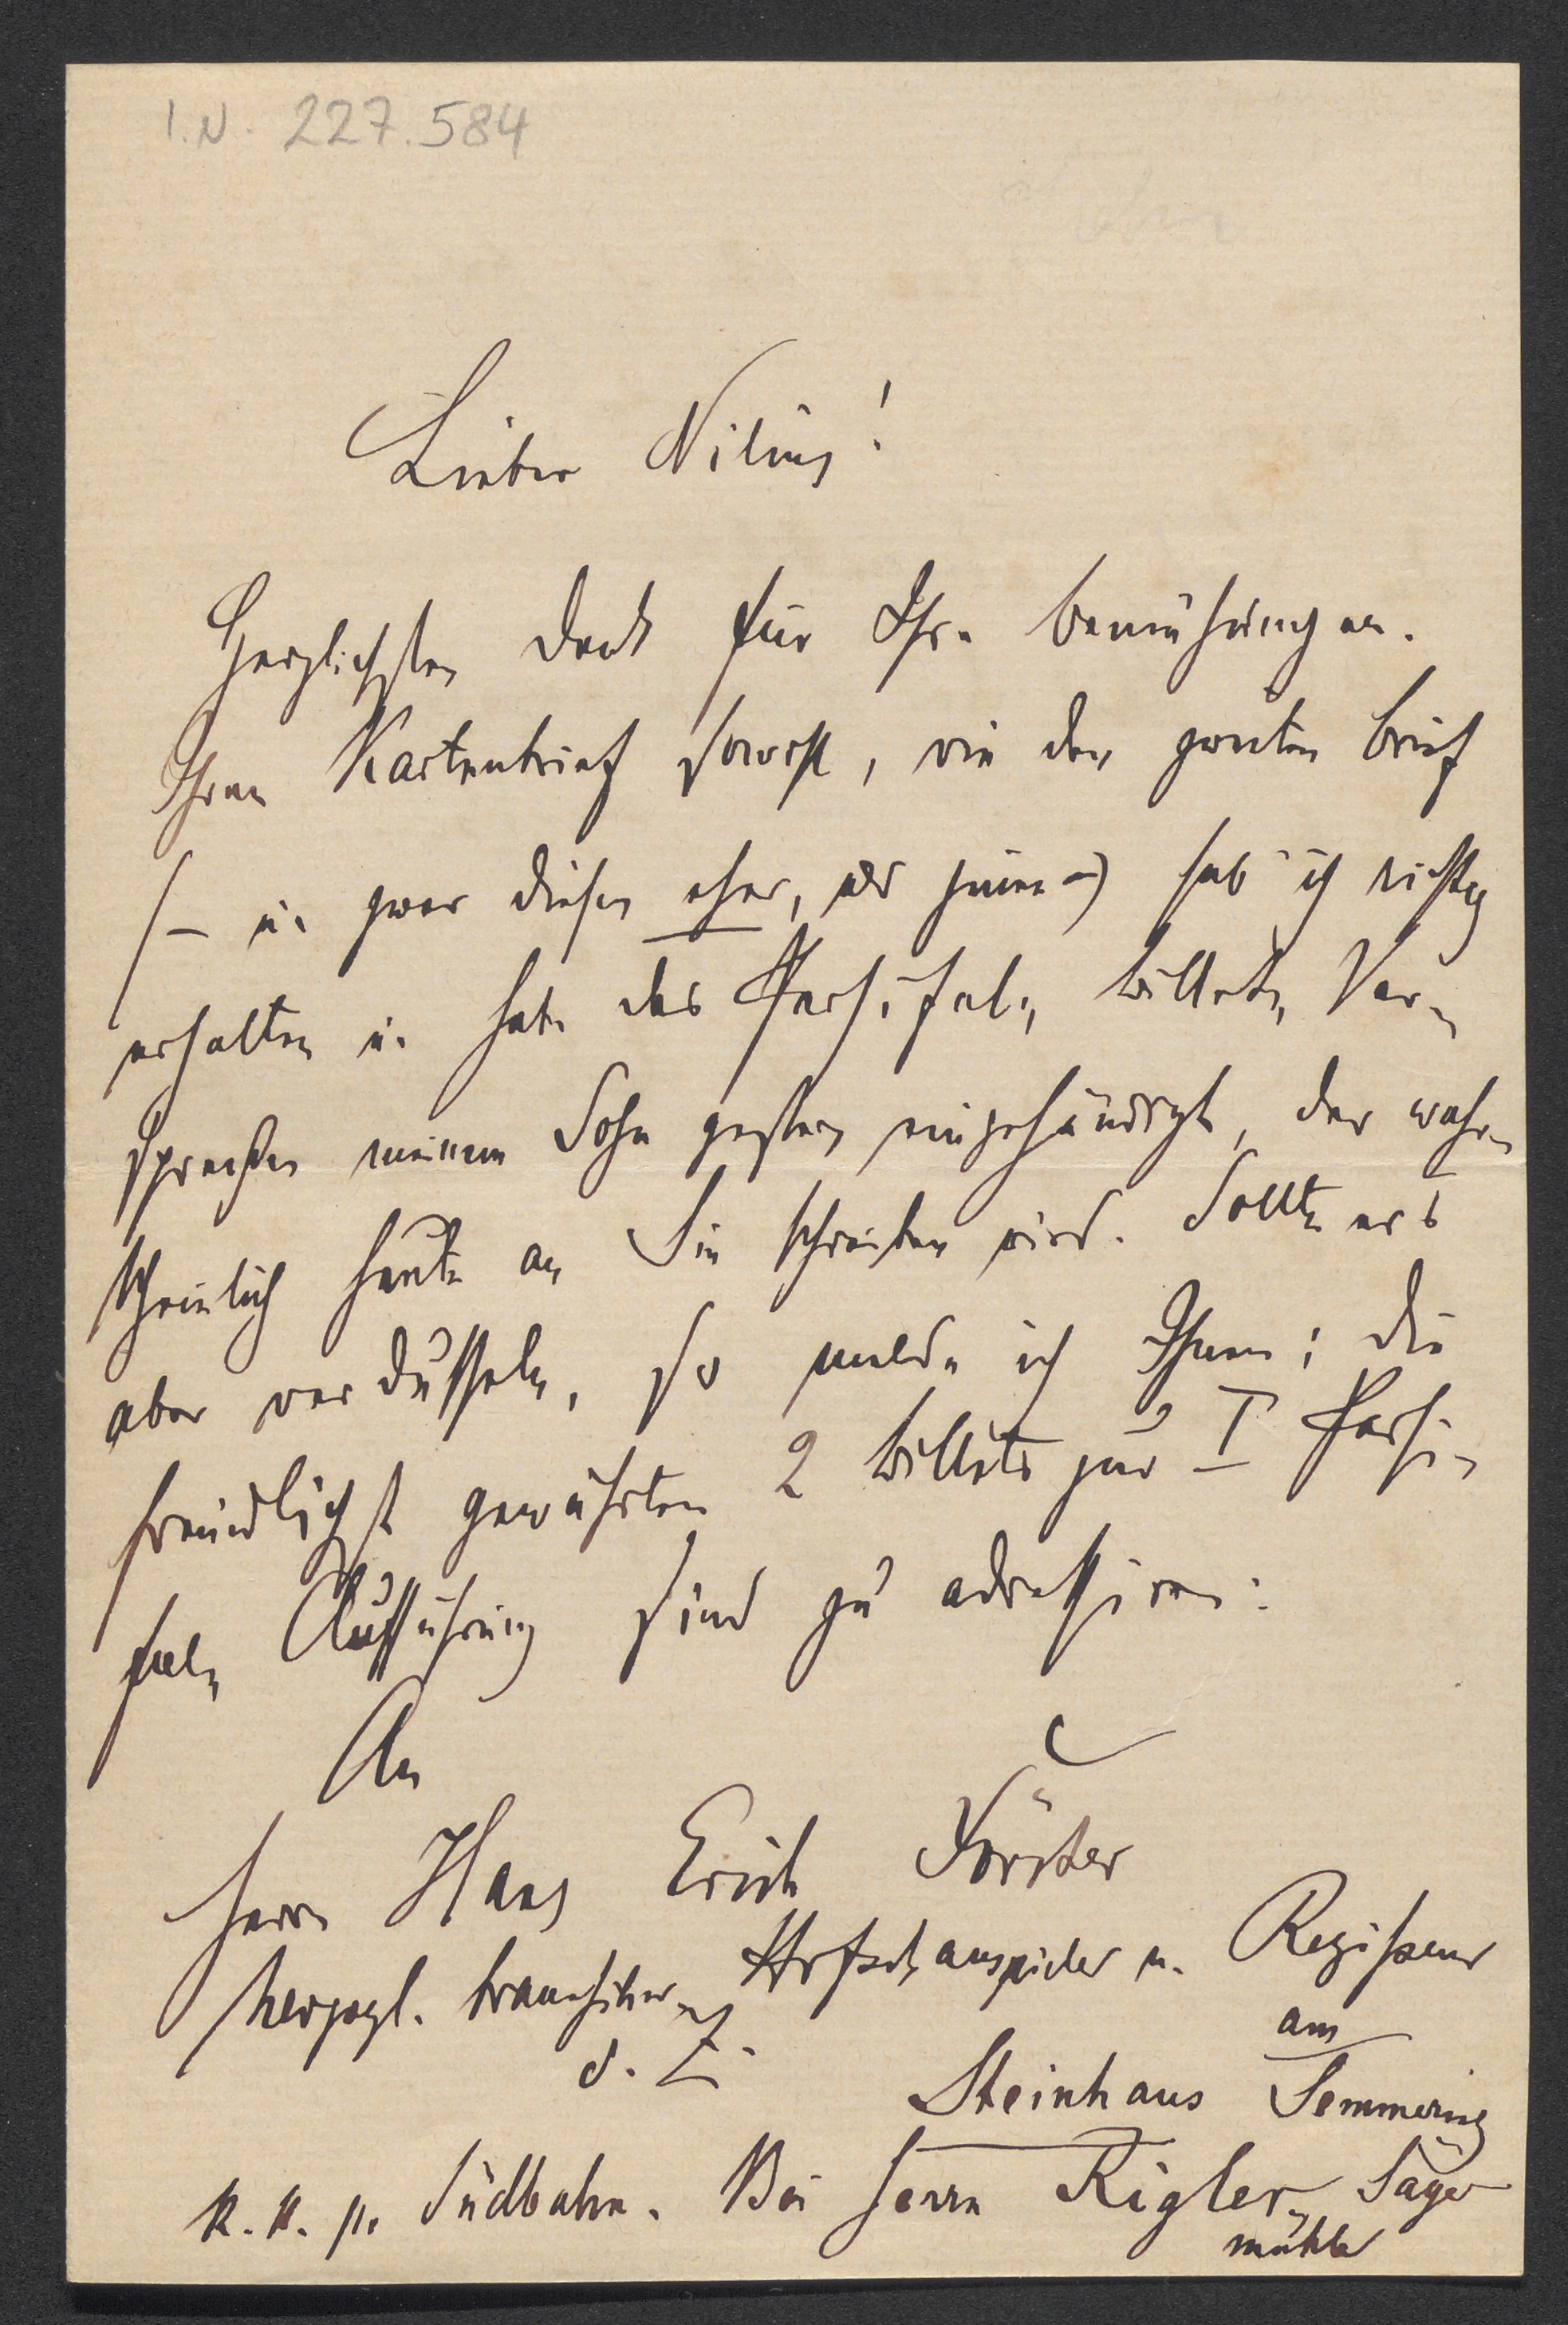 I.N. 227.584
Lieber Nilius!
Herzlichsten Dank für Ihre Bemühungen.
Ihren Kartenbrief sowohl, wie den zweiten Brief
(– u. zwar diesen eher, als jenen –) hab' ich richtig
erhalten u. habe das Parsifal-, Billets, Ver-
sprechen meinem Sohn gestern eingehändigt, der wahr-
scheinlich heute an Sie schreiben wird. Sollte er's
aber verdusseln, so melde ich Ihnen; die
freundlichst gewährten 2 Billets zur I Parsi-
fal- Aufführung sind zu adressiren:
An
Herrn Hans Erich Förster
herzogl. braunschw. Hofschauspieler u. Regisseur
d. Z.
am
Steinhaus Semmering
K. K. p. Südbahn. Bei Herrn Rigler, Säge-
mühle